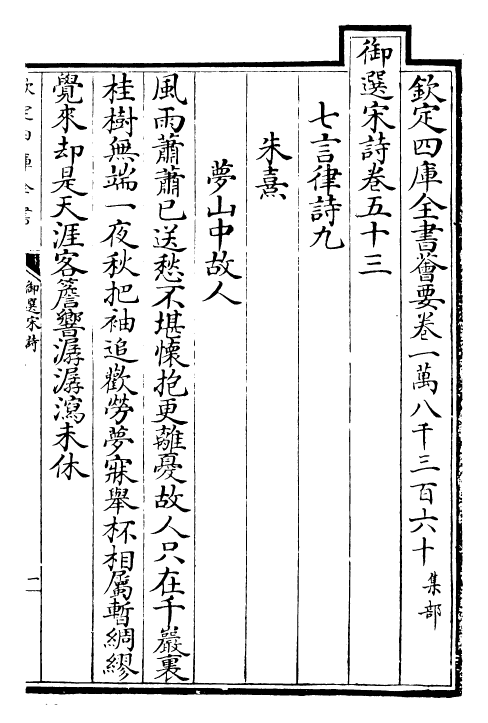 欽定四庫全書薈要卷一萬八千三百六十 集部
御選宋詩卷五十三
七言律詩九
朱熹
夢山中故人
風雨蕭蕭已送愁不堪懐抱更離憂故人只在千巖裏
桂樹無端一夜秋把袖追歡勞夢寐舉杯相屬暫綢繆
覺來却是天涯客簷響潺潺瀉未休
御選宋詩